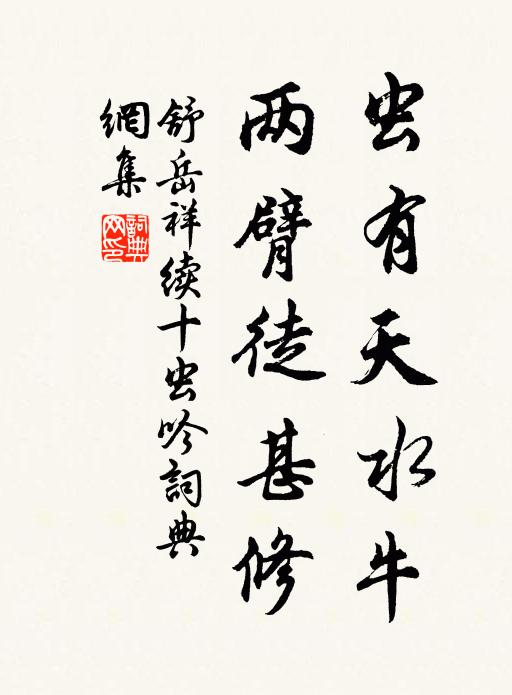 虫有天水牛
两臂徒甚修
舒岳祥续十虫吟詞典
網集
詞典
网印